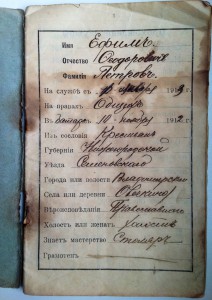 Имя Ефимъ
Отчество Ѳедоровичъ
Фамилія Петровъ.
На службѣ съ 191
На правахъ Общихъ
В 10 1912 г.
Изъ сословія Крестьянъ
Губерніи Нижегородской
Уѣзда Семеновскаго
Города или волости Владимирской
Села или деревни
Вѣроисповѣданія Православнаго
Холостъ или женатъ
Знаетъ мастерство Столяръ
Грамотенъ